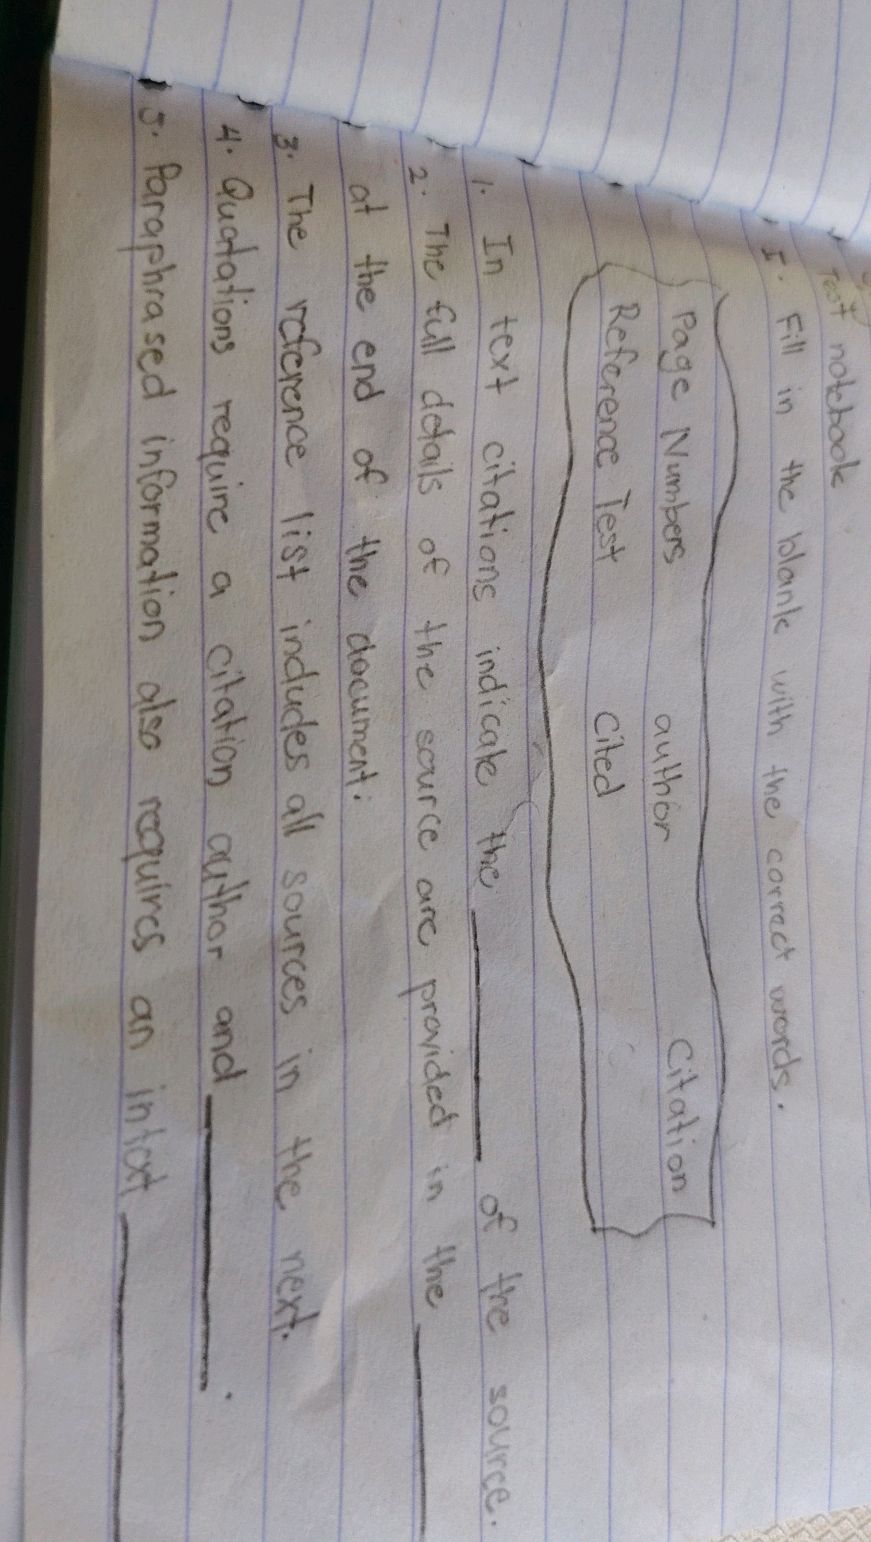 Test notebook
I. Fill in the blank with the correct words.
Page Numbers author Citation
Reference Test Cited
1. In text citations indicate the ________ of the source.
2. The full details of the source are provided in the ________
at the end of the document.
3. The reference list includes all sources in the next.
4. Quatations require a citation author and ________.
5. Paraphrased information also requires an intext ________